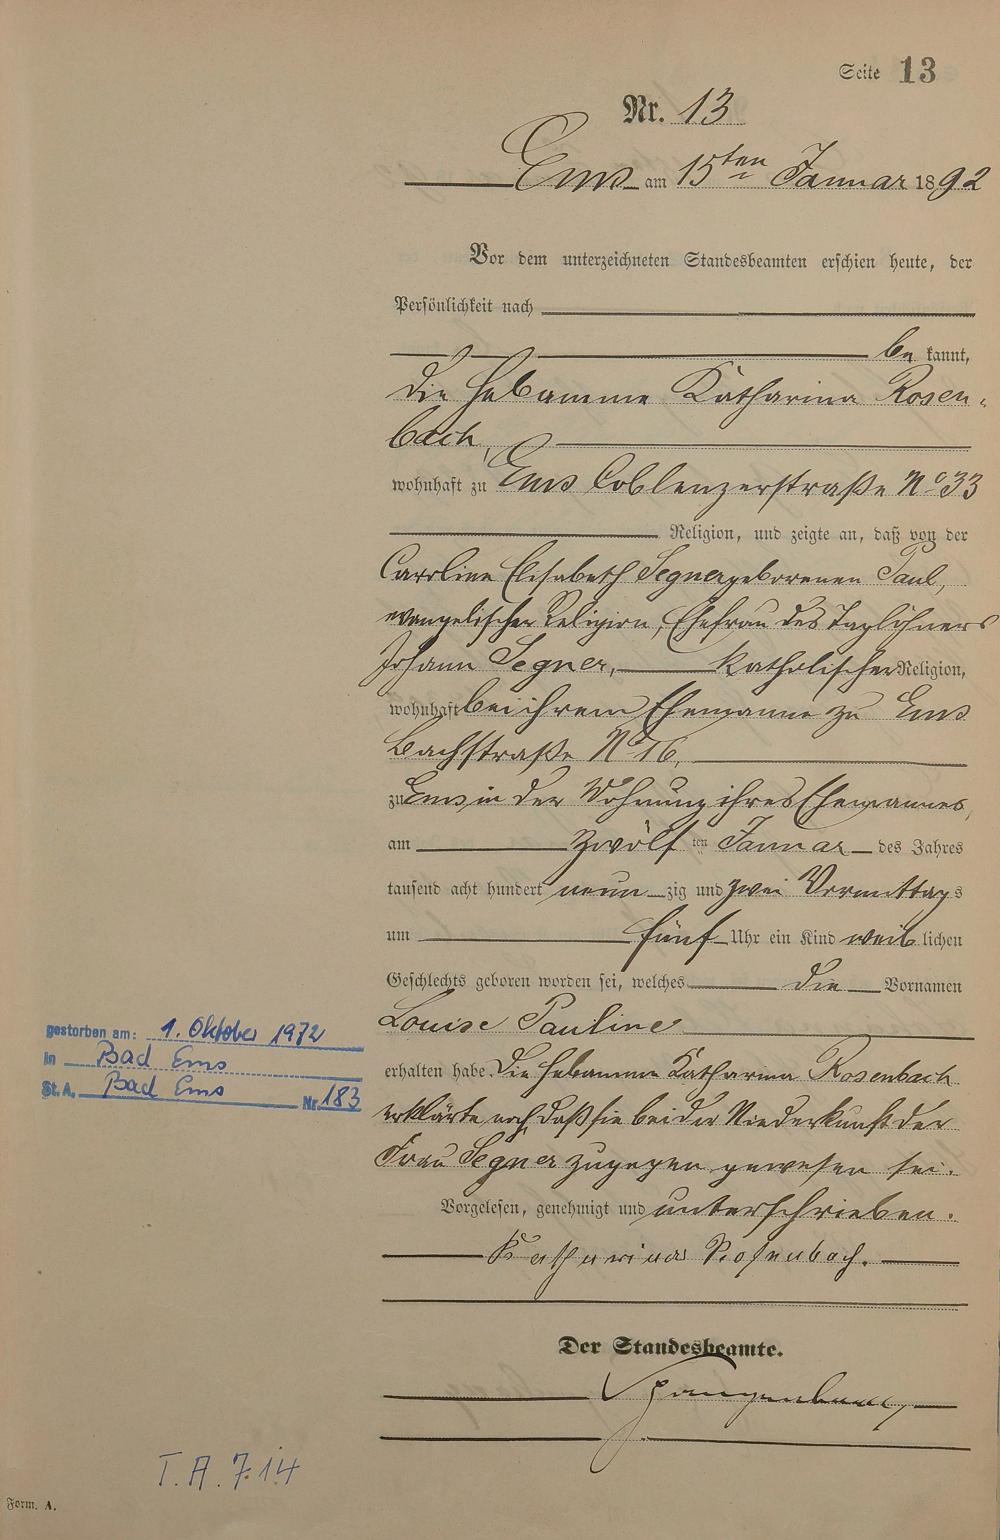 Seite 13
Nr. 13
Ems am 15ten Januar 1892
Vor dem unterzeichneten Standesbeamten erschien heute, der
Persönlichkeit nach
bekannt,
die Hebamme Katharina Rosen-
bach,
wohnhaft zu Ems Coblenzerstraße No 33
Religion, und zeigte an, daß von der
Caroline Elisabeth Segner geborenen Paul,
evangelischer Religion, Ehefrau des Taglöhners
Johann Segner, katholischer Religion,
wohnhaft bei ihrem Ehemanne zu Ems
Bachstraße No 16,
zu Ems in der Wohnung ihres Ehemannes,
am zwölften Januar des Jahres
tausend acht hundert neunzig und zwei Vormittags
um fünf Uhr ein Kind weiblichen
Geschlechts geboren worden sei, welches die Vornamen
Louise Pauline
erhalten habe. Die Hebamme Katharina Rosenbach
erklärte noch, daß sie bei der Niederkunft der
Frau Segner zugegen gewesen sei.
Vorgelesen, genehmigt und unterschrieben.
Katharina Rosenbach.
Der Standesbeamte.
gestorben am: 1. Oktober 1972
in Bad Ems
St.A. Bad Ems Nr. 183
T.A. 7.14
Form. A.